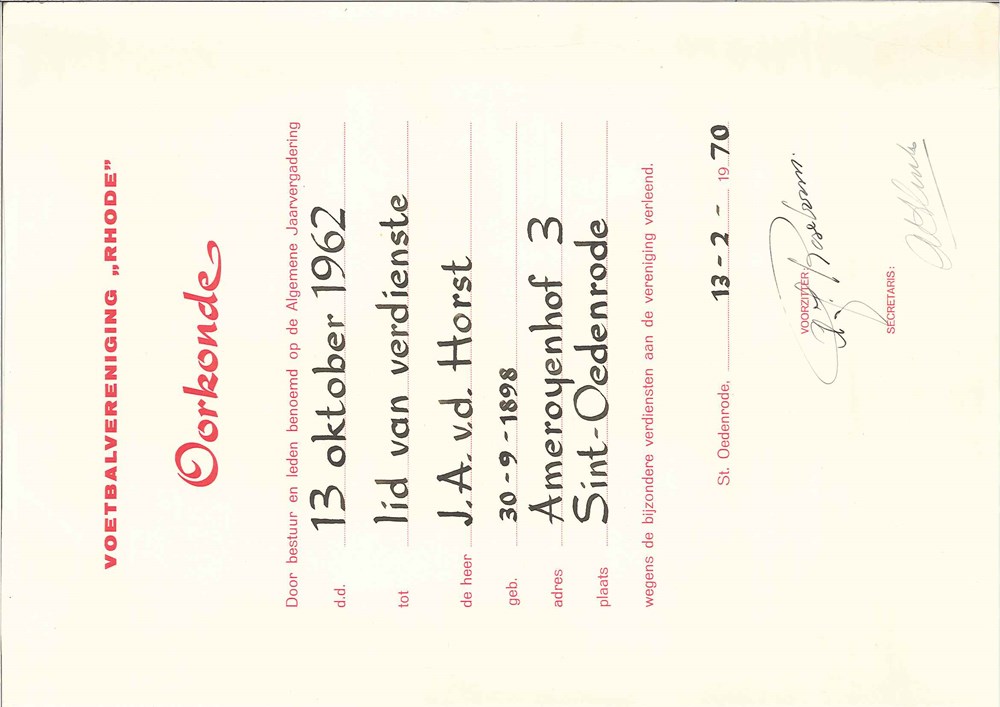 VOETBALVERENIGING „RHODE”
Oorkonde
Door bestuur en leden benoemd op de Algemene Jaarvergadering
d.d. 13 oktober 1962
tot lid van verdienste
de heer J.A. v.d. Horst
geb. 30-9-1898
adres Ameroyenhof 3
plaats Sint-Oedenrode
wegens de bijzondere verdiensten aan de vereniging verleend.
St. Oedenrode, 13-2- 1970
VOORZITTER:
SECRETARIS: